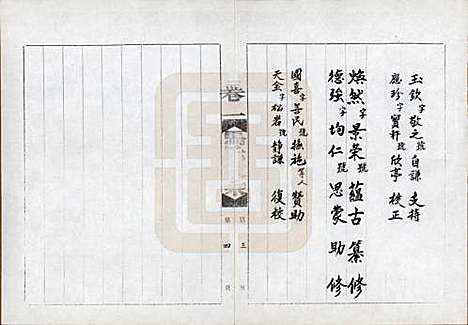 玉欽字敬之號自謙 支持
應珍字寶軒號欣亭 校正
煥然字景榮號蘊古 纂修
德強字均仁號思蒙 助修
國喜字善民號樵施等人 贊助
天金字松岩號靜謙 復校
卷一
第三頁
第四頁